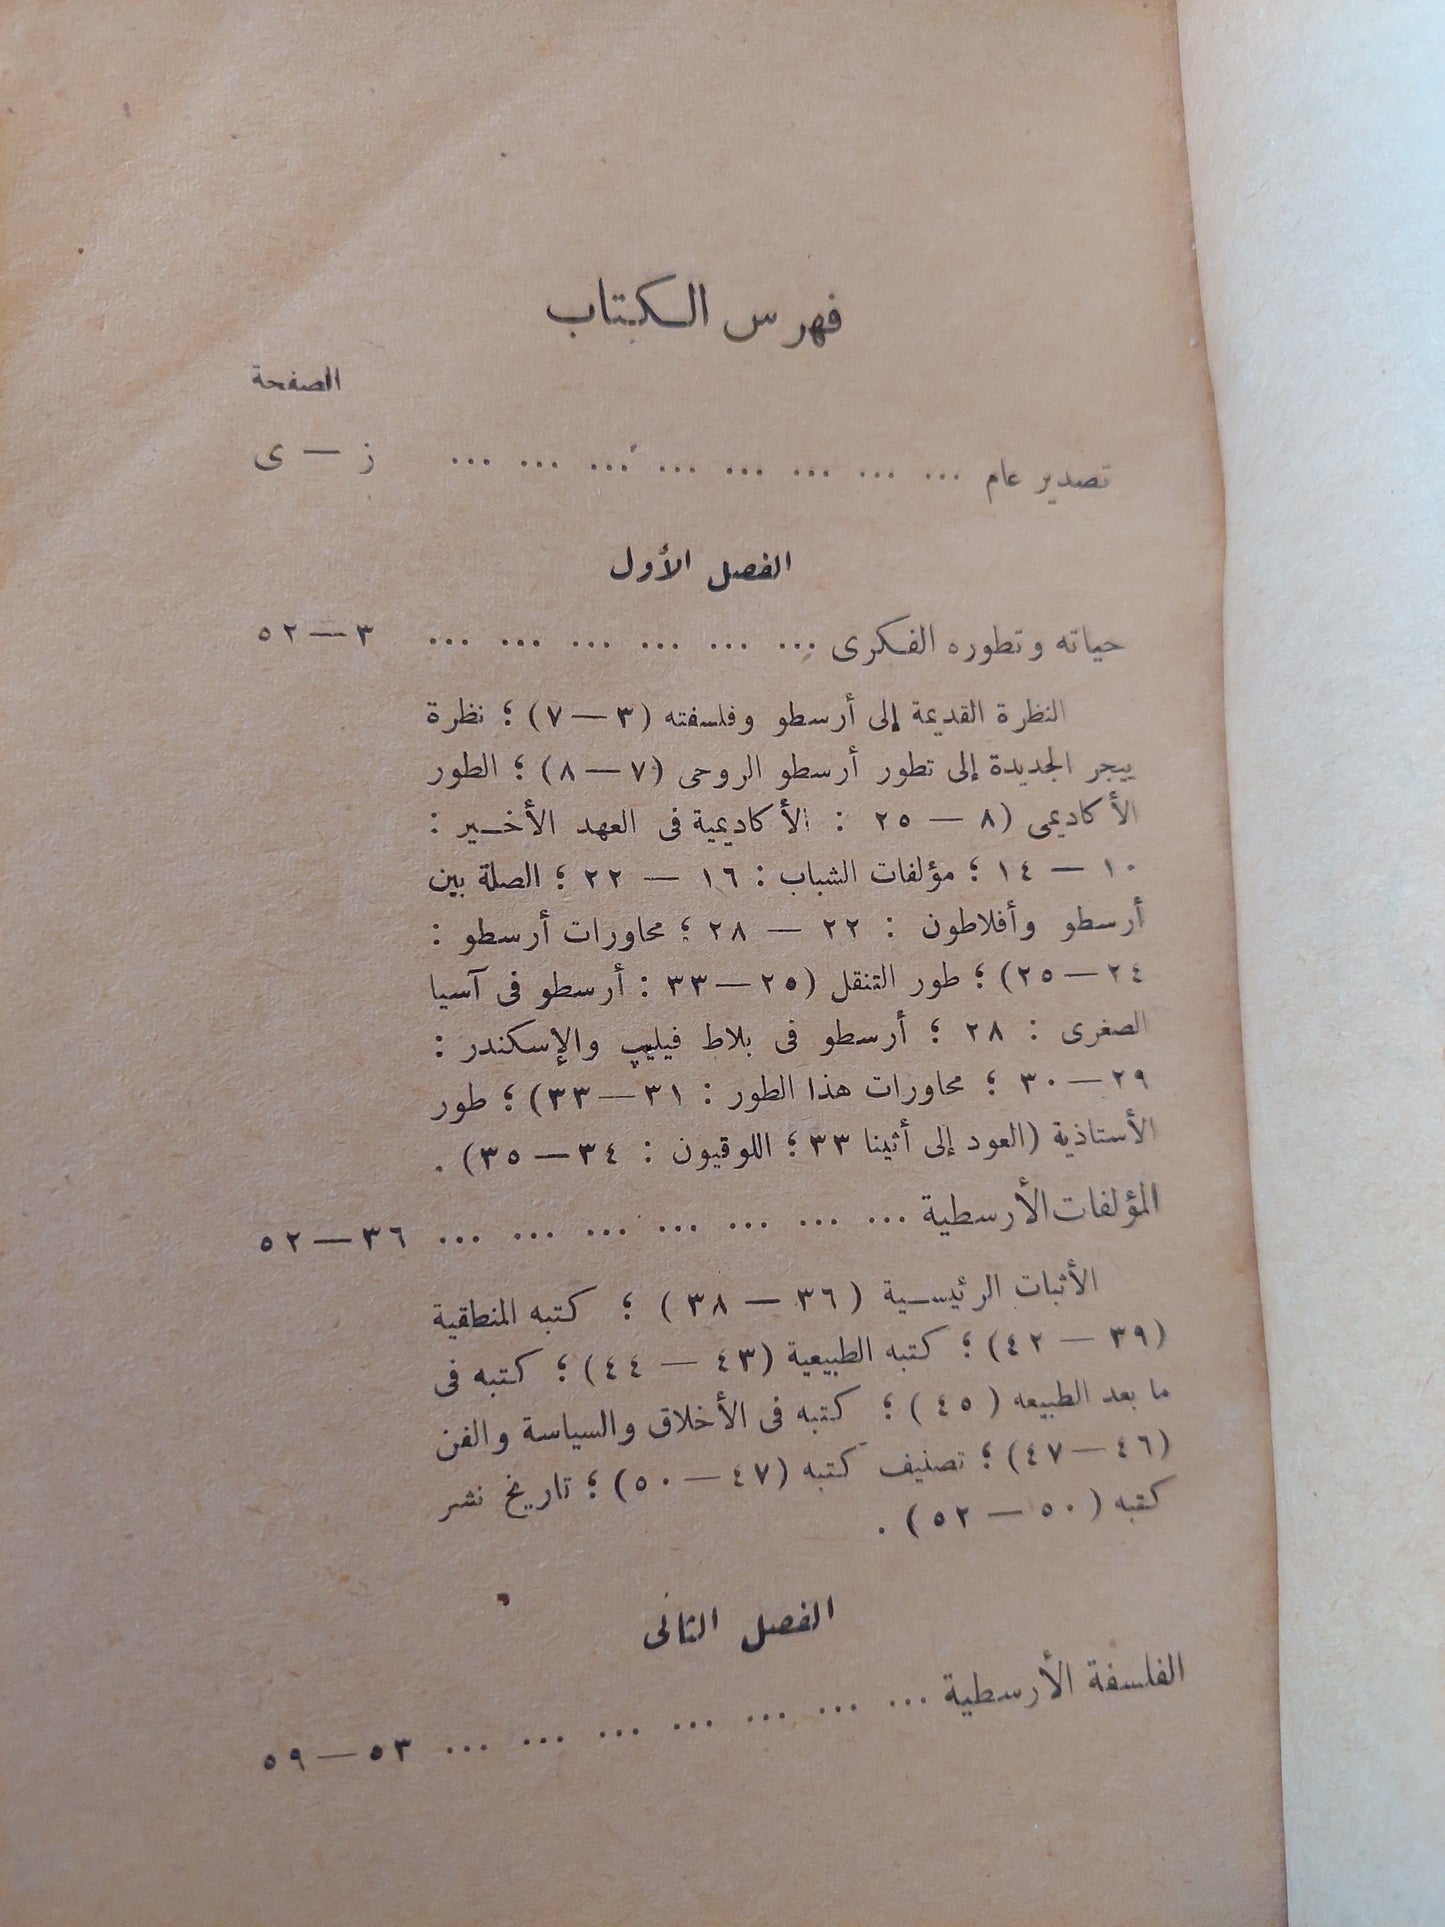 فهرس الكتاب
الصفحة
تصدير عام ... ... ... ... ... ... ... ... ز — ى
الفصل الأول
حياته وتطوره الفكرى ... ... ... ... ... ... ٣ — ٥٢
النظرة القديمة إلى أرسطو وفلسفته (٣ — ٧) ؛ نظرة
ييجر الجديدة إلى تطور أرسطو الروحى (٧ — ٨) ؛ الطور
الأكاديمى (٨ — ٢٥ : الأكاديمية فى العهد الأخير :
١٠ — ١٤ ؛ مؤلفات الشباب : ١٦ — ٢٢ ؛ الصلة بين
أرسطو وأفلاطون : ٢٢ — ٢٨ ؛ محاورات أرسطو :
٢٤ — ٢٥) ؛ طور التنقل (٢٥ — ٣٣ : أرسطو فى آسيا
الصغرى : ٢٨ ؛ أرسطو فى بلاط فيليپ والإسكندر :
٢٩ — ٣٠ ؛ محاورات هذا الطور : ٣١ — ٣٣) ؛ طور
الأستاذية (العود إلى أثينا ٣٣ ؛ اللوقيون : ٣٤ — ٣٥) .
المؤلفات الأرسطية ... ... ... ... ... ... ... ٣٦ — ٥٢
الأثبات الرئيسية (٣٦ — ٣٨) ؛ كتبه المنطقية
(٣٩ — ٤٢) ؛ كتبه الطبيعية (٤٣ — ٤٤) ؛ كتبه فى
ما بعد الطبيعه (٤٥) ؛ كتبه فى الأخلاق والسياسة والفن
(٤٦ — ٤٧) ؛ تصنيف كتبه (٤٧ — ٥٠) ؛ تاريخ نشر
كتبه (٥٠ — ٥٢) .
الفصل الثانى
الفلسفة الأرسطية ... ... ... ... ... ... ... ٥٣ — ٥٩